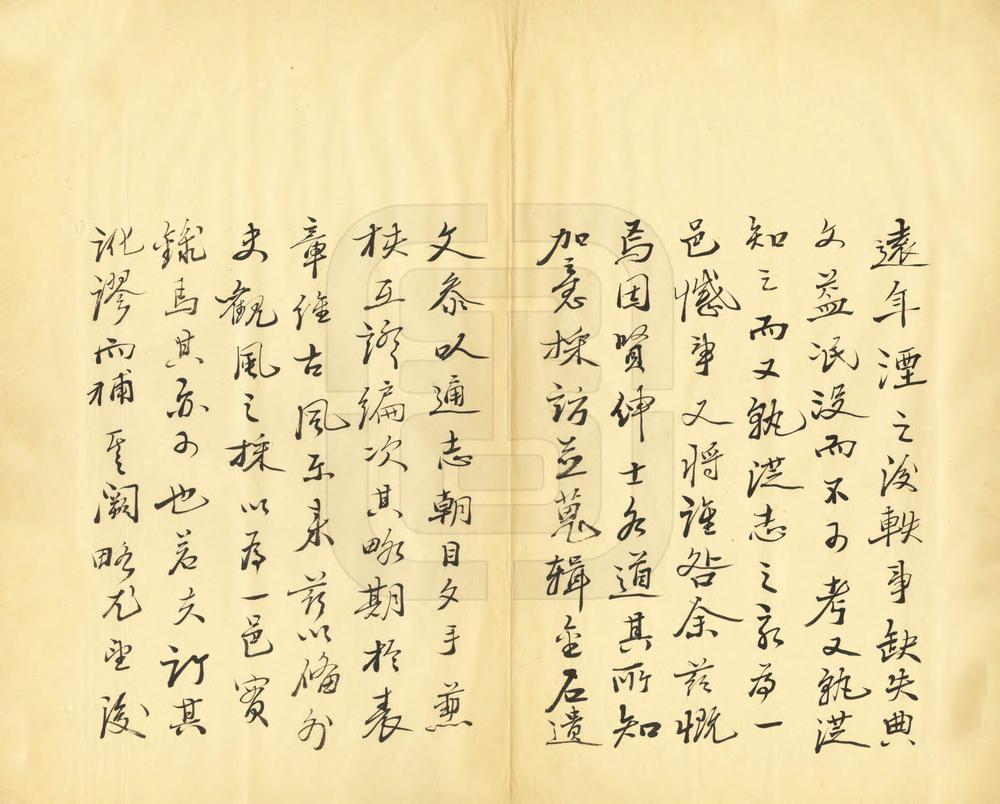 遠年湮之後軼事缺失典
文益泯没而不可考又孰從
知之而又孰從志之家為一
邑憾事又將誰咎余茲慨
焉因賢紳士各道其所知
加意採訪並蒐輯金石遺
文叅以通志朝目夕手兼
校互證編次其略期於表
章維古風示來茲以俻外
史觀風之採以為一邑實
錄焉其亦可也若夫訂其
訛謬而補其闕略尤望後